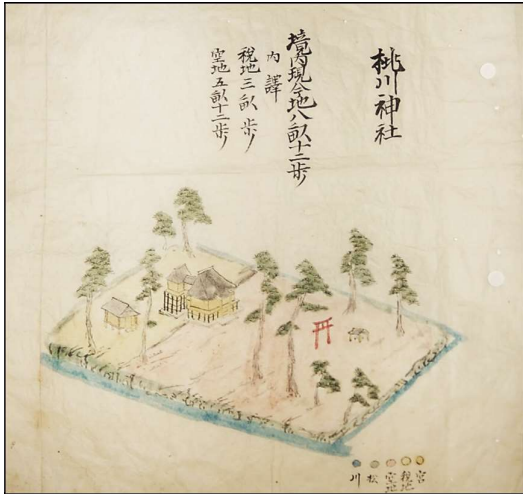 桃川神社
境内現今地八畝十二歩
内譯
税地三畝歩
空地五畝十二歩
宮
税地
空地
松
川